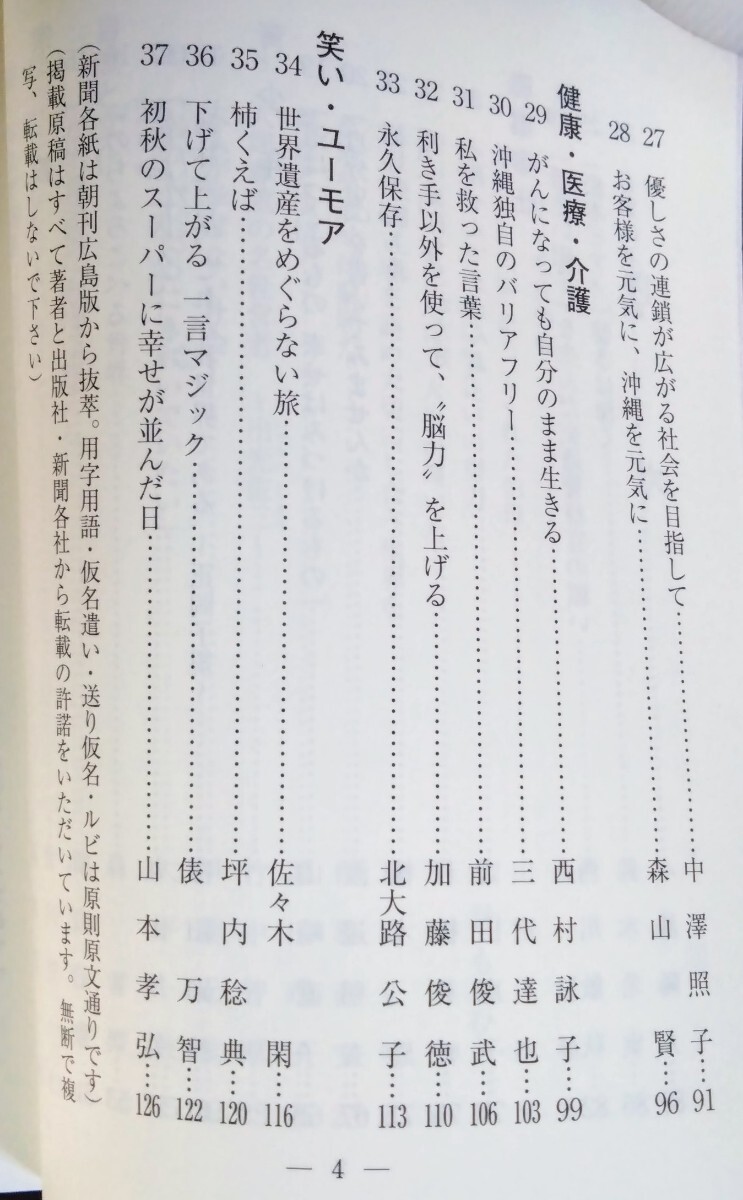 27 優しさの連鎖が広がる社会を目指して……中澤照子…91
28 お客様を元気に、沖縄を元気に……森山賢…96
健康・医療・介護
29 がんになっても自分のまま生きる……西村詠子…99
30 沖縄独自のバリアフリー……三代達也…103
31 私を救った言葉……前田俊武…106
32 利き手以外を使って、〝脳力〟を上げる……加藤俊徳…110
33 永久保存……北大路公子…113
笑い・ユーモア
34 世界遺産をめぐらない旅……佐々木閑…116
35 柿くえば……坪内稔典…120
36 下げて上がる 一言マジック……俵万智…122
37 初秋のスーパーに幸せが並んだ日……山本孝弘…126
(新聞各紙は朝刊広島版から抜萃。用字用語・仮名遣い・送り仮名・ルビは原則原文通りです)
(掲載原稿はすべて著者と出版社・新聞各社から転載の許諾をいただいています。無断で複
写、転載はしないで下さい)
— 4 —